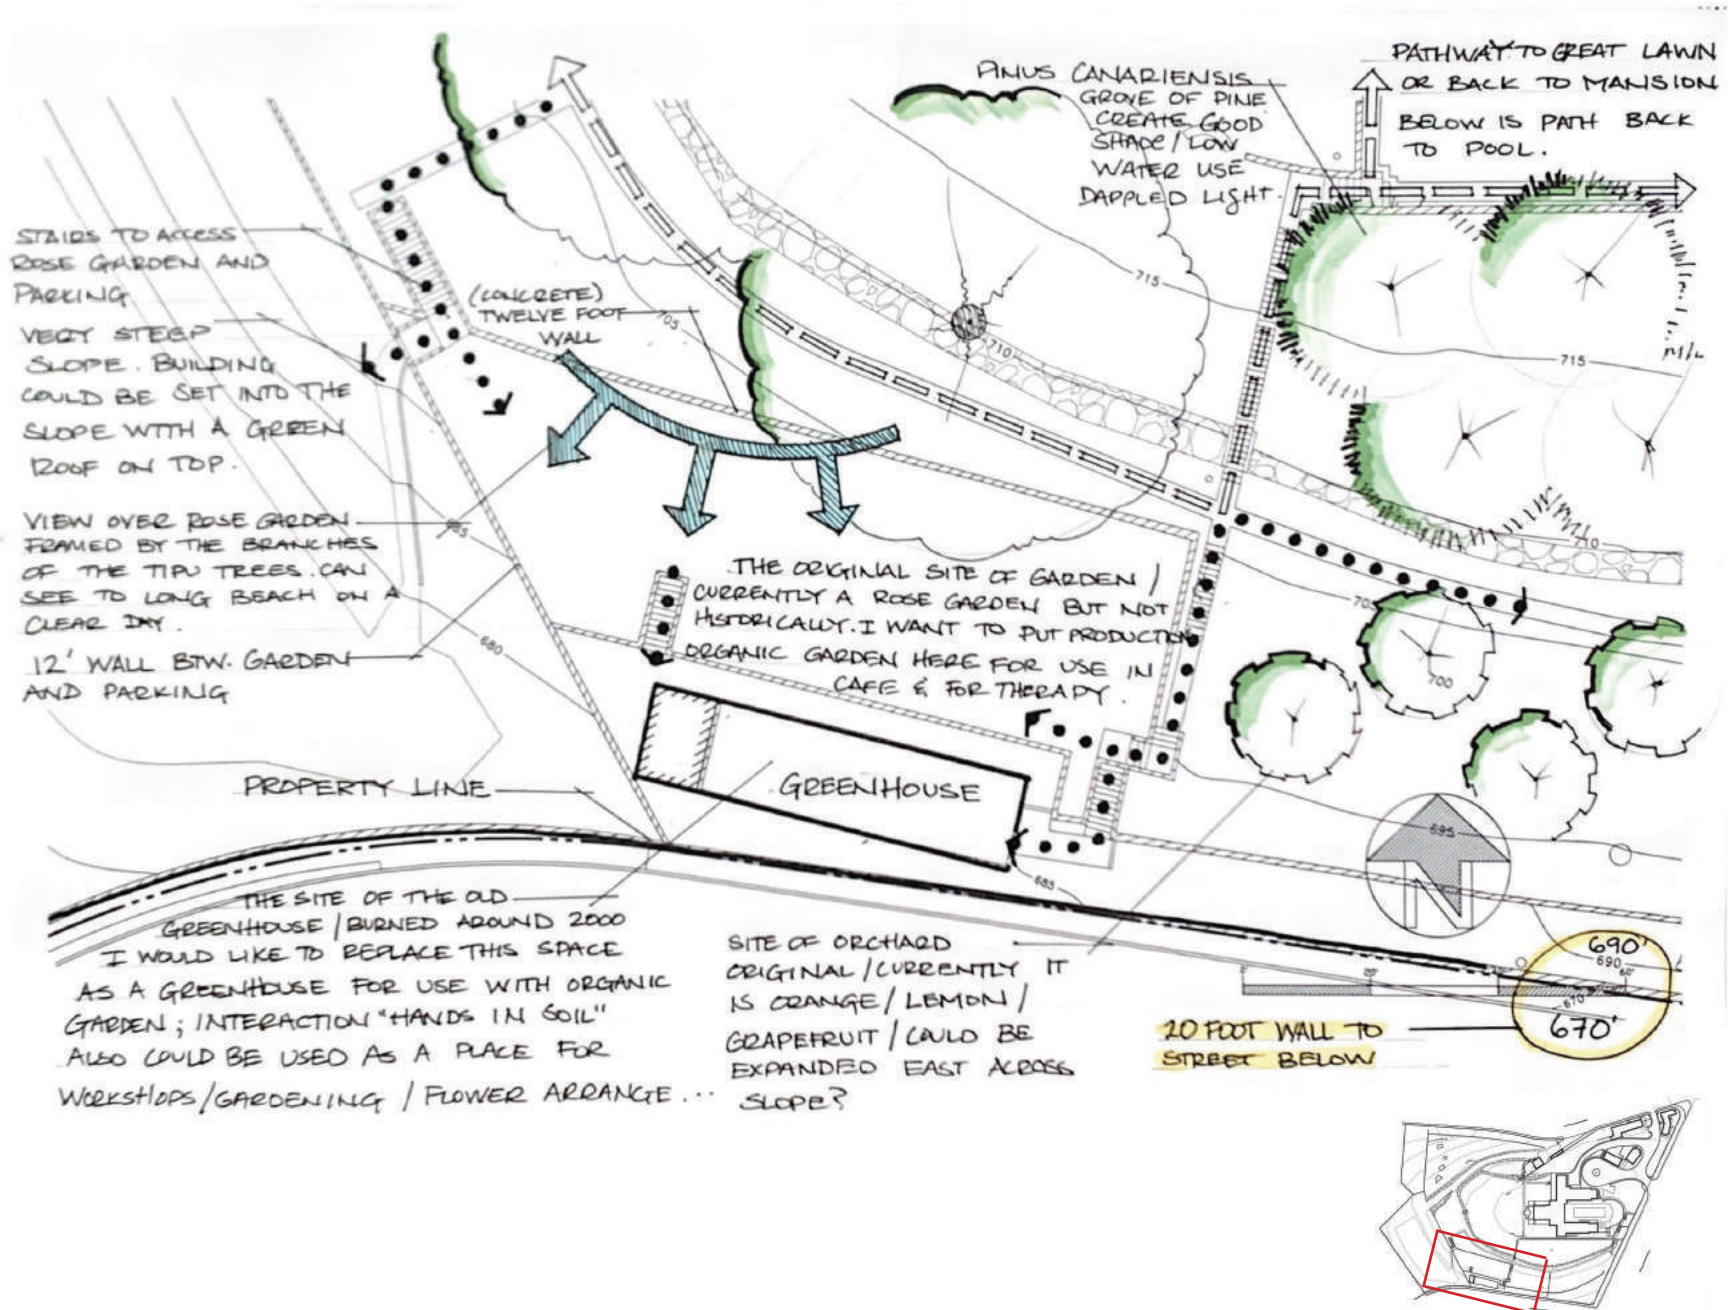 PATHWAY TO GREAT LAWN
OR BACK TO MANSION
BELOW IS PATH BACK
TO POOL.
PINUS CANARIENSIS
GROVE OF PINE
CREATE GOOD
SHADE/LOW
WATER USE
DAPPLED LIGHT.
STAIRS TO ACCESS
ROSE GARDEN AND
PARKING
VERY STEEP
SLOPE. BUILDING
COULD BE SET INTO THE
SLOPE WITH A GREEN
ROOF ON TOP.
(CONCRETE)
TWELVE FOOT
WALL
705
710
715
715
710
VIEW OVER ROSE GARDEN
FRAMED BY THE BRANCHES
OF THE TIPU TREES. CAN
SEE TO LONG BEACH ON A
CLEAR DAY.
12' WALL BTW. GARDEN
AND PARKING
680
THE ORIGINAL SITE OF GARDEN /
CURRENTLY A ROSE GARDEN BUT NOT
HISTORICALLY. I WANT TO PUT PRODUCTION
ORGANIC GARDEN HERE FOR USE IN
CAFE & FOR THERAPY.
700
PROPERTY LINE
GREENHOUSE
695
685
N
THE SITE OF THE OLD
GREENHOUSE / BURNED AROUND 2000
I WOULD LIKE TO REPLACE THIS SPACE
AS A GREENHOUSE FOR USE WITH ORGANIC
GARDEN; INTERACTION "HANDS IN SOIL"
ALSO COULD BE USED AS A PLACE FOR
WORKSHOPS/GARDENING / FLOWER ARRANGE...
SITE OF ORCHARD
ORIGINAL/CURRENTLY IT
IS ORANGE/LEMON/
GRAPEFRUIT/COULD BE
EXPANDED EAST ACROSS
SLOPE?
690'
690
670
670'
20 FOOT WALL TO
STREET BELOW